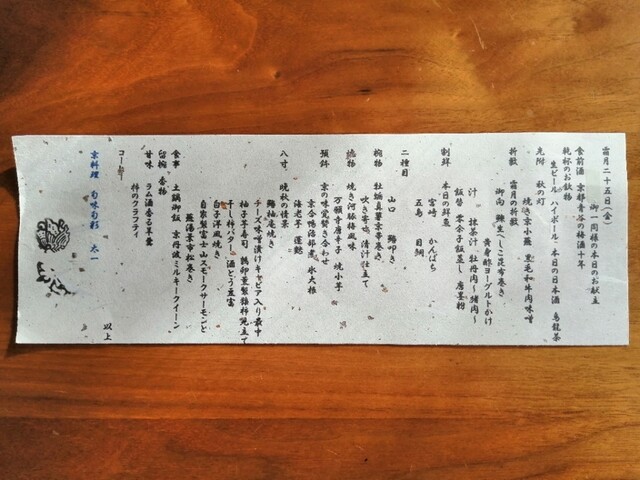 霜月二十五日(金)
御一同様の本日のお献立
食前酒 京都青谷の梅酒十年
乾杯のお飲物
生ビール ハイボール 本日の日本酒 烏龍茶
先附 秋の灯
焼き京小蕪 黒毛和牛肉味噌
折敷 霜月の折敷
御向 鯵生ずしこ昆布巻き
黄身酢ヨーグルトかけ
汁 抹茶汁 牡丹肉～猪肉～
飯替 零余子飯蒸し 唐墨粉
割鮮 本日の鮮魚
宮崎 かんぱち
五島 目鯛
二種目
山口 鰆叩き
椀物 牡蠣真薯京壬巻き
吹き寄せ 清汁仕立て
焼物 焼き河豚梅風味
万願寺唐辛子 焼小芋
預鉢 京の味覚炊き合わせ
京合鴨治部煮 氷大根
海老芋 蓮麩
八寸 晩秋の情景
鰆柚庵焼き
チーズ味噌漬けキャビア入り最中
柚子芋寿司 鶉卵薫製猿柿見立て
干し柿バター 酒とう豆富
白子洋風焼き
自家製富士山スモークサーモンと
蕪湯葉京市松巻き
食事 土鍋御飯 京丹波ミルキークイーン
留椀 香物
甘味 ラム酒香る羊羹
柿のクラフティ
コーヒー
以上
京料理 旬味旬彩 太一